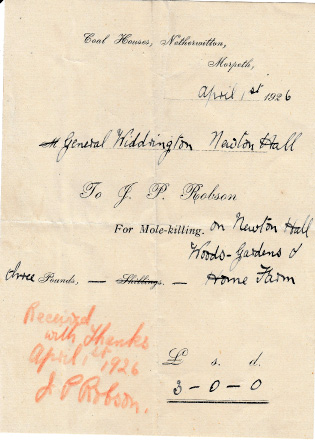 Coal Houses, Netherwitton,
Morpeth,
April 1st 1926
M General Widdrington Newton Hall
To J. P. Robson
For Mole-killing. on Newton Hall
Woods-Gardens &
three Pounds, — Shillings. — Home Farm
Received
with Thanks
April 1st, 1926
J P Robson.
£ s. d.
3 - 0 - 0